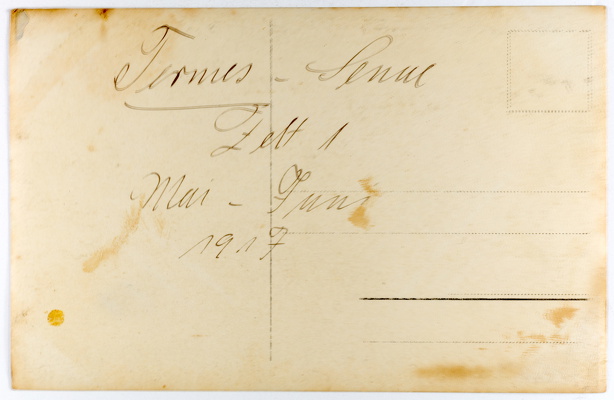 Termes - Senuc
Zelt 1
Mai - Juni
1917